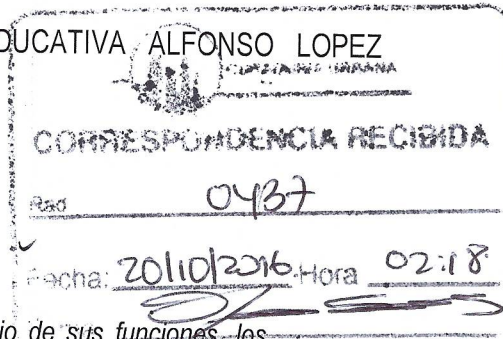 DUCATIVA ALFONSO LOPEZ
URBANA
CORRESPONDENCIA RECIBIDA
Rad 0437
Fecha: 20/10/2016 Hora 02:18
io de sus funciones, los